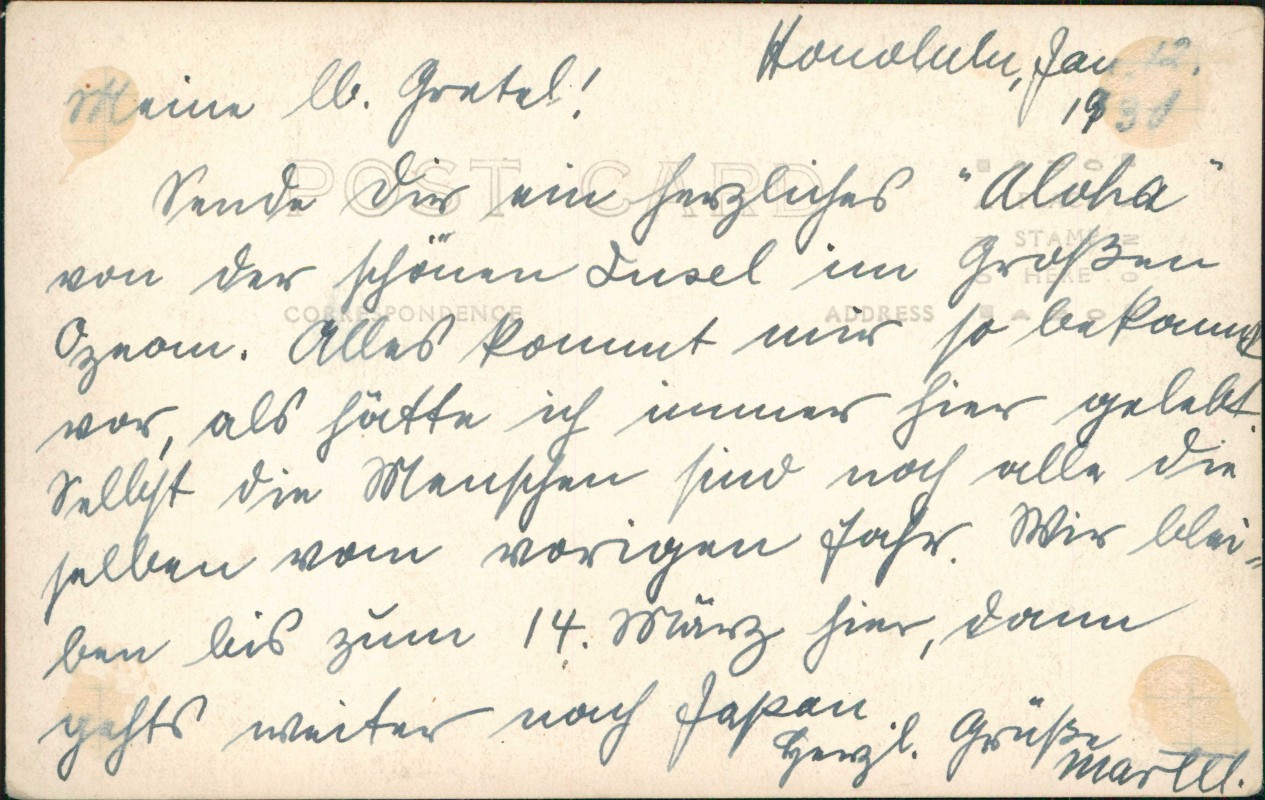 Honolulu, Jan. 12.
1931
Meine lb. Gretel!
POST CARD
Sende Dir ein herzliches "Aloha"
von der schönen Insel im Großen
STAMP
HERE
CORRESPONDENCE
ADDRESS
Ozean. Alles kommt mir so bekannt
vor, als hätte ich immer hier gelebt.
Selbst die Menschen sind noch alle die
selben vom vorigen Jahr. Wir blei=
ben bis zum 14. März hier, dann
gehts weiter nach Japan.
Herzl. Grüße